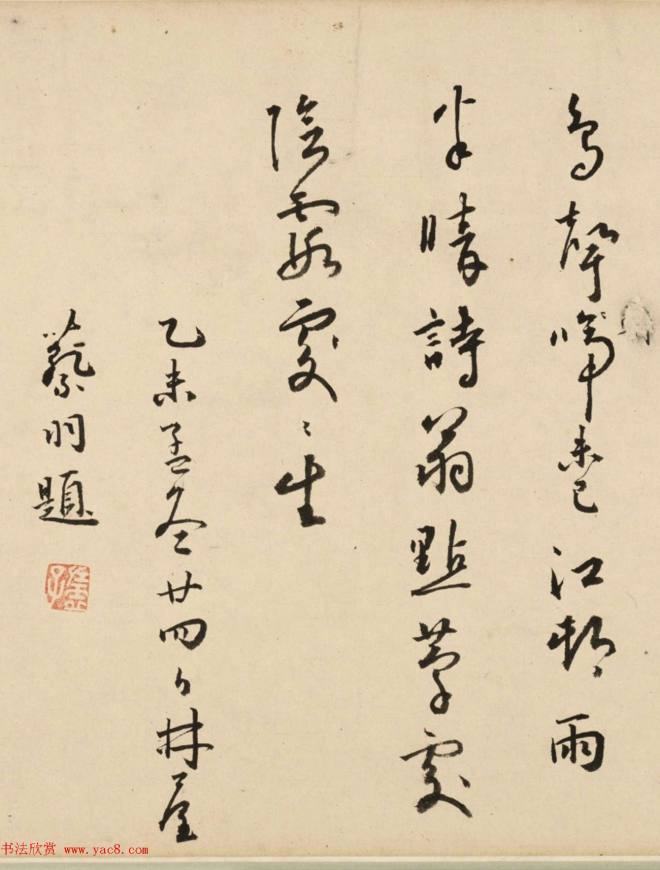 鳥聲啼未已江村雨
半晴詩翁點筆處
陰霞處々生
乙未孟冬廿四日林屋
蔡羽題
书法欣赏 www.yac8.com